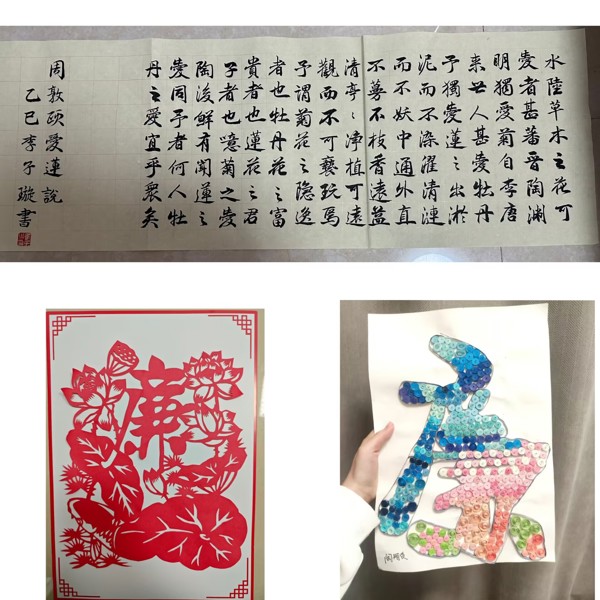 水陸草木之花可
愛者甚蕃晉陶淵
明獨愛菊自李唐
来世人甚愛牡丹
予獨愛蓮之出淤
泥而不染濯清漣
而不妖中通外直
不蔓不枝香遠益
清亭〻淨植可遠
觀而不可褻玩焉
予謂菊花之隐逸
者也牡丹花之富
貴者也蓮花之君
子者也噫菊之愛
陶後鮮有聞蓮之
愛同予者何人牡
丹之愛宜乎衆矣
周敦頤愛蓮說
乙巳李子璇書
廉
廉